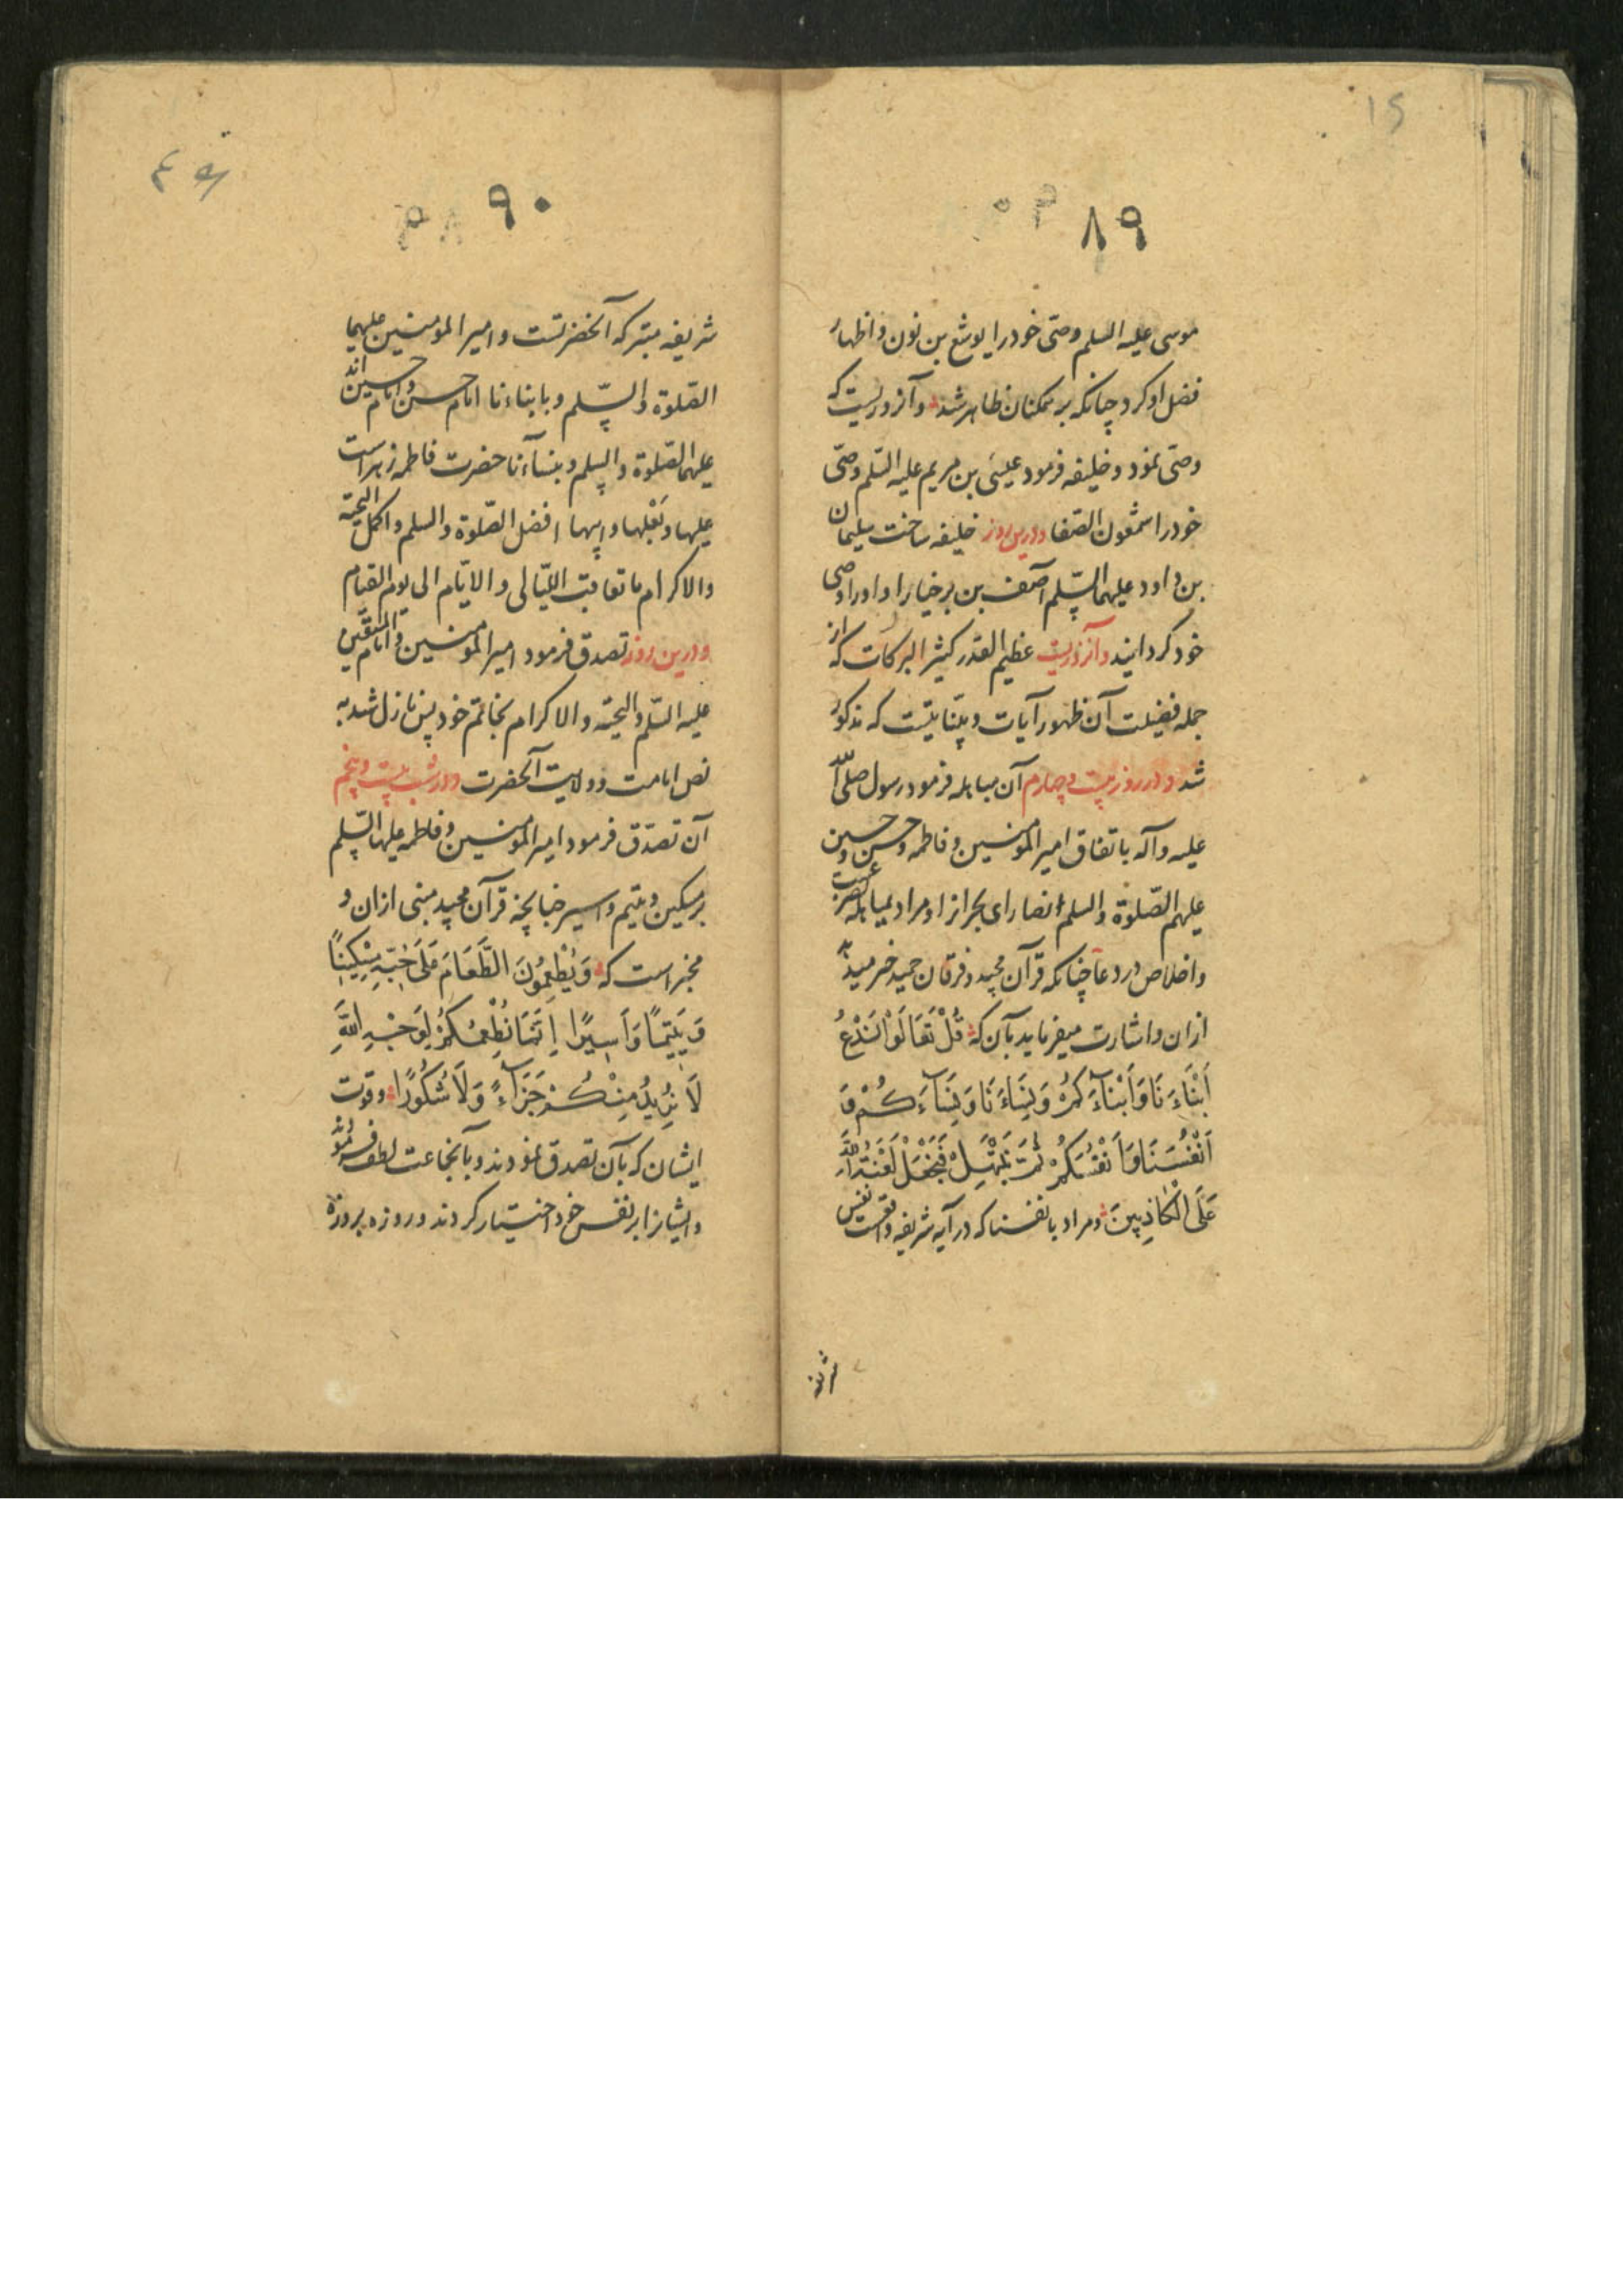 ٨٩
موسی علیه السلم وصّی خود را یوشع بن نون و اظهار
فضل او کرد چنانکه بر همکنان ظاهر شد و آنروزیست که
وصّی نمود و خلیفه فرمود عیسَی بن مریم علیه السّلم وصّی
خود را شمعون الصّفا و درین روز خلیفه ساخت سلیمان
بن داود علیهما السّلم آصف بن برخیا را و او را وصی
خود کردانید و آنروزیست عظیم القدر کثیر البرکات که از
جمله فضیلت آن ظهور آیات و بیّناتیست که مذکور
شد و در روز بیست و چهارم آن مباهله فرمود رسول صلی الله
علیه وآله باتفاق امیر المؤمنین و فاطمه و حسن و حسین
علیهم الصّلوة والسلم انصارای نجرانرا و مراد بمباهله
و اخلاص در دعا چنانکه قرآن مجید و فرقان حمید خبر میدهد
ازان و اشارت میفرماید بآن که قُلْ تَعَالَوْا نَدْعُ
اَبْنَاءَنَا وَاَبْنَآءَكُمْ وَنِسَاءَنَا وَنِسَآءَكُمْ وَ
اَنْفُسَنَا وَاَنْفُسَكُمْ ثُمَّ نَبْتَهِلْ فَنَجْعَلْ لَعْنَةَ اللّٰهِ
عَلَى الْكَاذِبِينَ و مراد بانفسنا که در آیه شریفه واقعست نفس
شریفه
٩٠
شریفه متبرکه آنحضرتست و امیر المومنین علیهما
الصّلوة والسّلم و بابناءنا امام حسن و امام حسین اند
علیهما الصّلوة والسلم و بنسآءنا حضرت فاطمه زهراست
علیها و بَعْلها و ابیها افضل الصّلوة والسلم و اکمل التحیّة
والاکرام ما تعاقبت اللّیالی والایّام الی یوم القیام
و درین روز تصدق فرمود امیر المؤمنین و امام المتّقین
علیه السّلم والتحیّه والاکرام بخاتم خود پس نازل شد به
نصّ امامت و ولایت آنحضرت و در شب بیست و پنجم
آن تصدّق فرمود امیر المؤمنین و فاطمه علیها السّلم
بر مسکین و یتیم و اسیر چنانچه قرآن مجید مبنی ازان و
مخبر است که وَيُطْعِمُونَ الطَّعَامَ عَلَى حُبِّهِ مِسْكِينًا
وَيَتِيمًا وَاَسِيرًا اِنَّمَا نُطْعِمُكُمْ لِوَجْهِ اللّٰهِ
لَا نُرِيدُ مِنْكُمْ جَزَآءً وَلَا شُكُورًا و قوت
ایشان که بآن تصدق نمودند و بآنجماعت لطف فرمودند
و ایشانرا بر نفس خود اختیار کردند و روزه بروزه